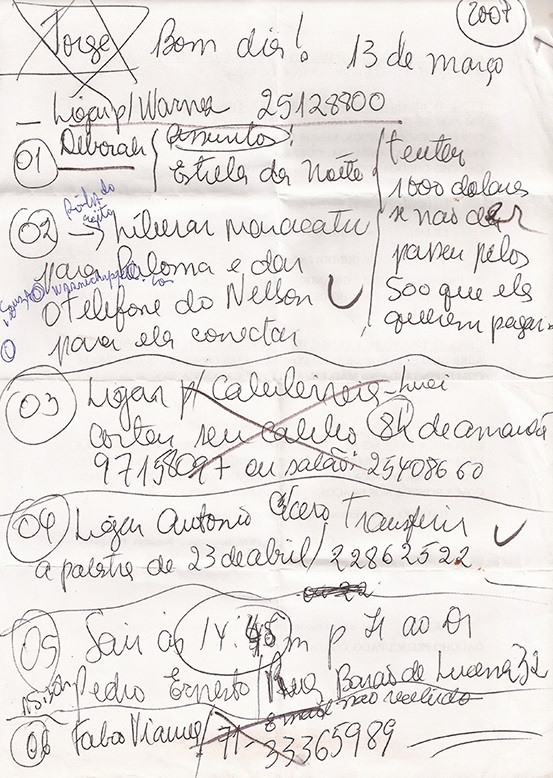 2007
Jorge Bom dia! 13 de março
– Ligar p/ Warner 25128800
01 Deborah
Estrela da Noite
tentar
1000 dolares
se não der
passeu pelos
500 que ela
querem pagar.
02 → Liberar maracatu
para Paloma e dar
o telefone do Nelson
para ela conectar
03 Ligar p/ Cabelereira - Luci
cortar seu cabelo 8H de amanhã
97158097 ou salão: 25408660
04 Ligar Antonio Cícero Transferir
a palestra de 23 de abril / 22862522
05 Sair às 14:45 m p ir ao Dr
Pedro Ernesto Rua Barão de Lucena 32
06 Fabio Vianna / 71 - 33365989
e mail não recebido